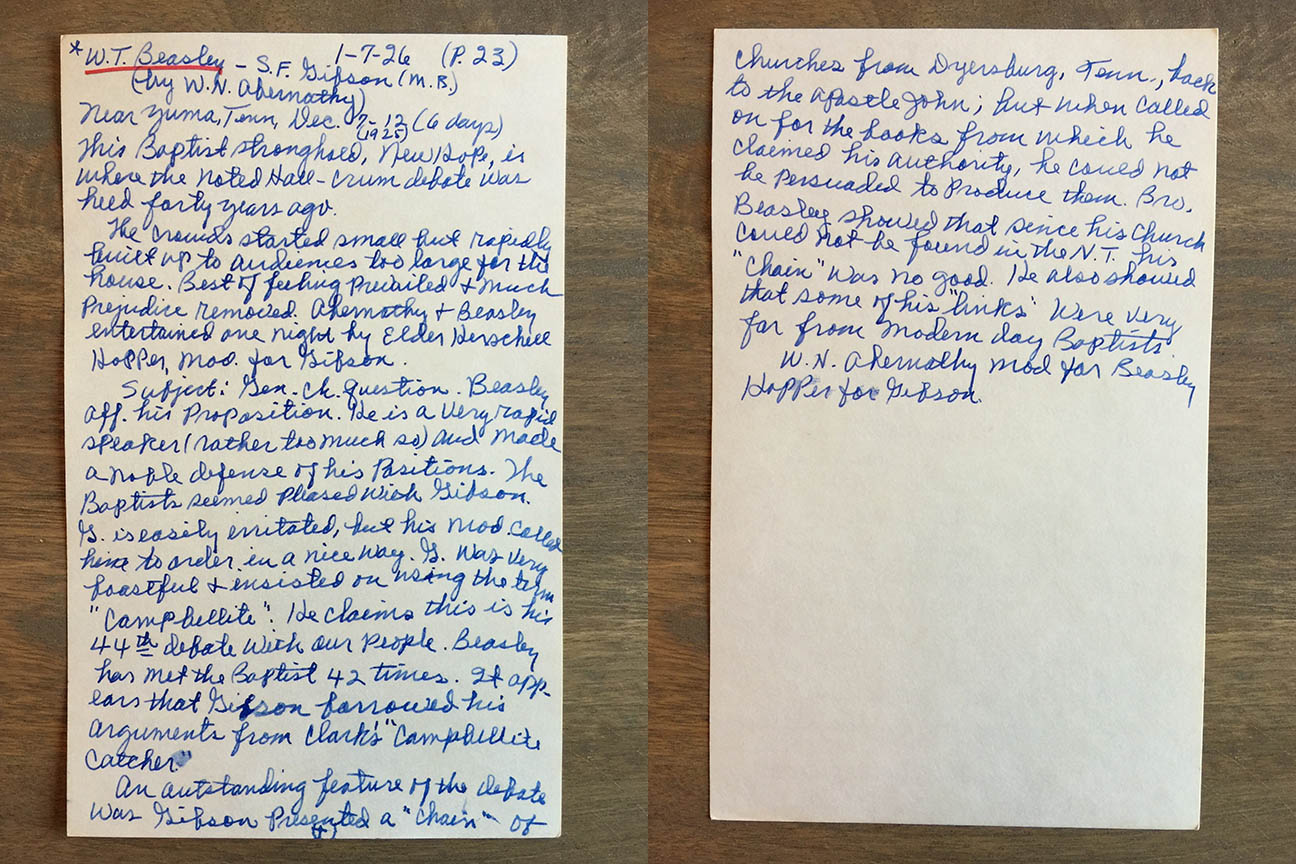 * W.T. Beasley - S.F. Gibson (M.B.) 1-7-26 (P. 23)
(by W.N. Abernathy)
Near Yuma, Tenn, Dec. 7-12 (6 days)
(1925)
This Baptist stronghold, New Hope, is
where the noted Hall-Crum debate was
held forty years ago.
The crowds started small but rapidly
built up to audiences too large for the
house. Best of feeling Prevailed & Much
Prejudice removed. Abernathy & Beasley
entertained one night by Elder Herschell
Hopper, Mod. for Gibson.
Subject: Gen. Ch. Question. Beasley
aff. his Proposition. He is a Very rapid
speaker (rather too much so) and made
a noble defense of his Positions. The
Baptists seemed Pleased With Gibson.
G. is easily irritated, but his Mod. called
him to order in a nice way. G. Was Very
boastful & insisted on using the term
"Campbellite". He claims this is his
44th debate With our People. Beasley
has met the Baptist 42 times. It app-
ears that Gibson borrowed his
arguments from Clark's "Campbellite
Catcher"
An outstanding feature of the debate
Was Gibson Presented a "Chain" of
Churches from Dyersburg, Tenn., back
to the Apostle John; but when called
on for the books from which he
claimed his authority, he could not
be Persuaded to Produce them. Bro.
Beasley showed that since his Church
could not be found in the N.T. his
"Chain" was no good. He also showed
that some of his "links" Were Very
far from Modern day Baptists.
W.N. Abernathy Mod for Beasley
Hopper for Gibson.